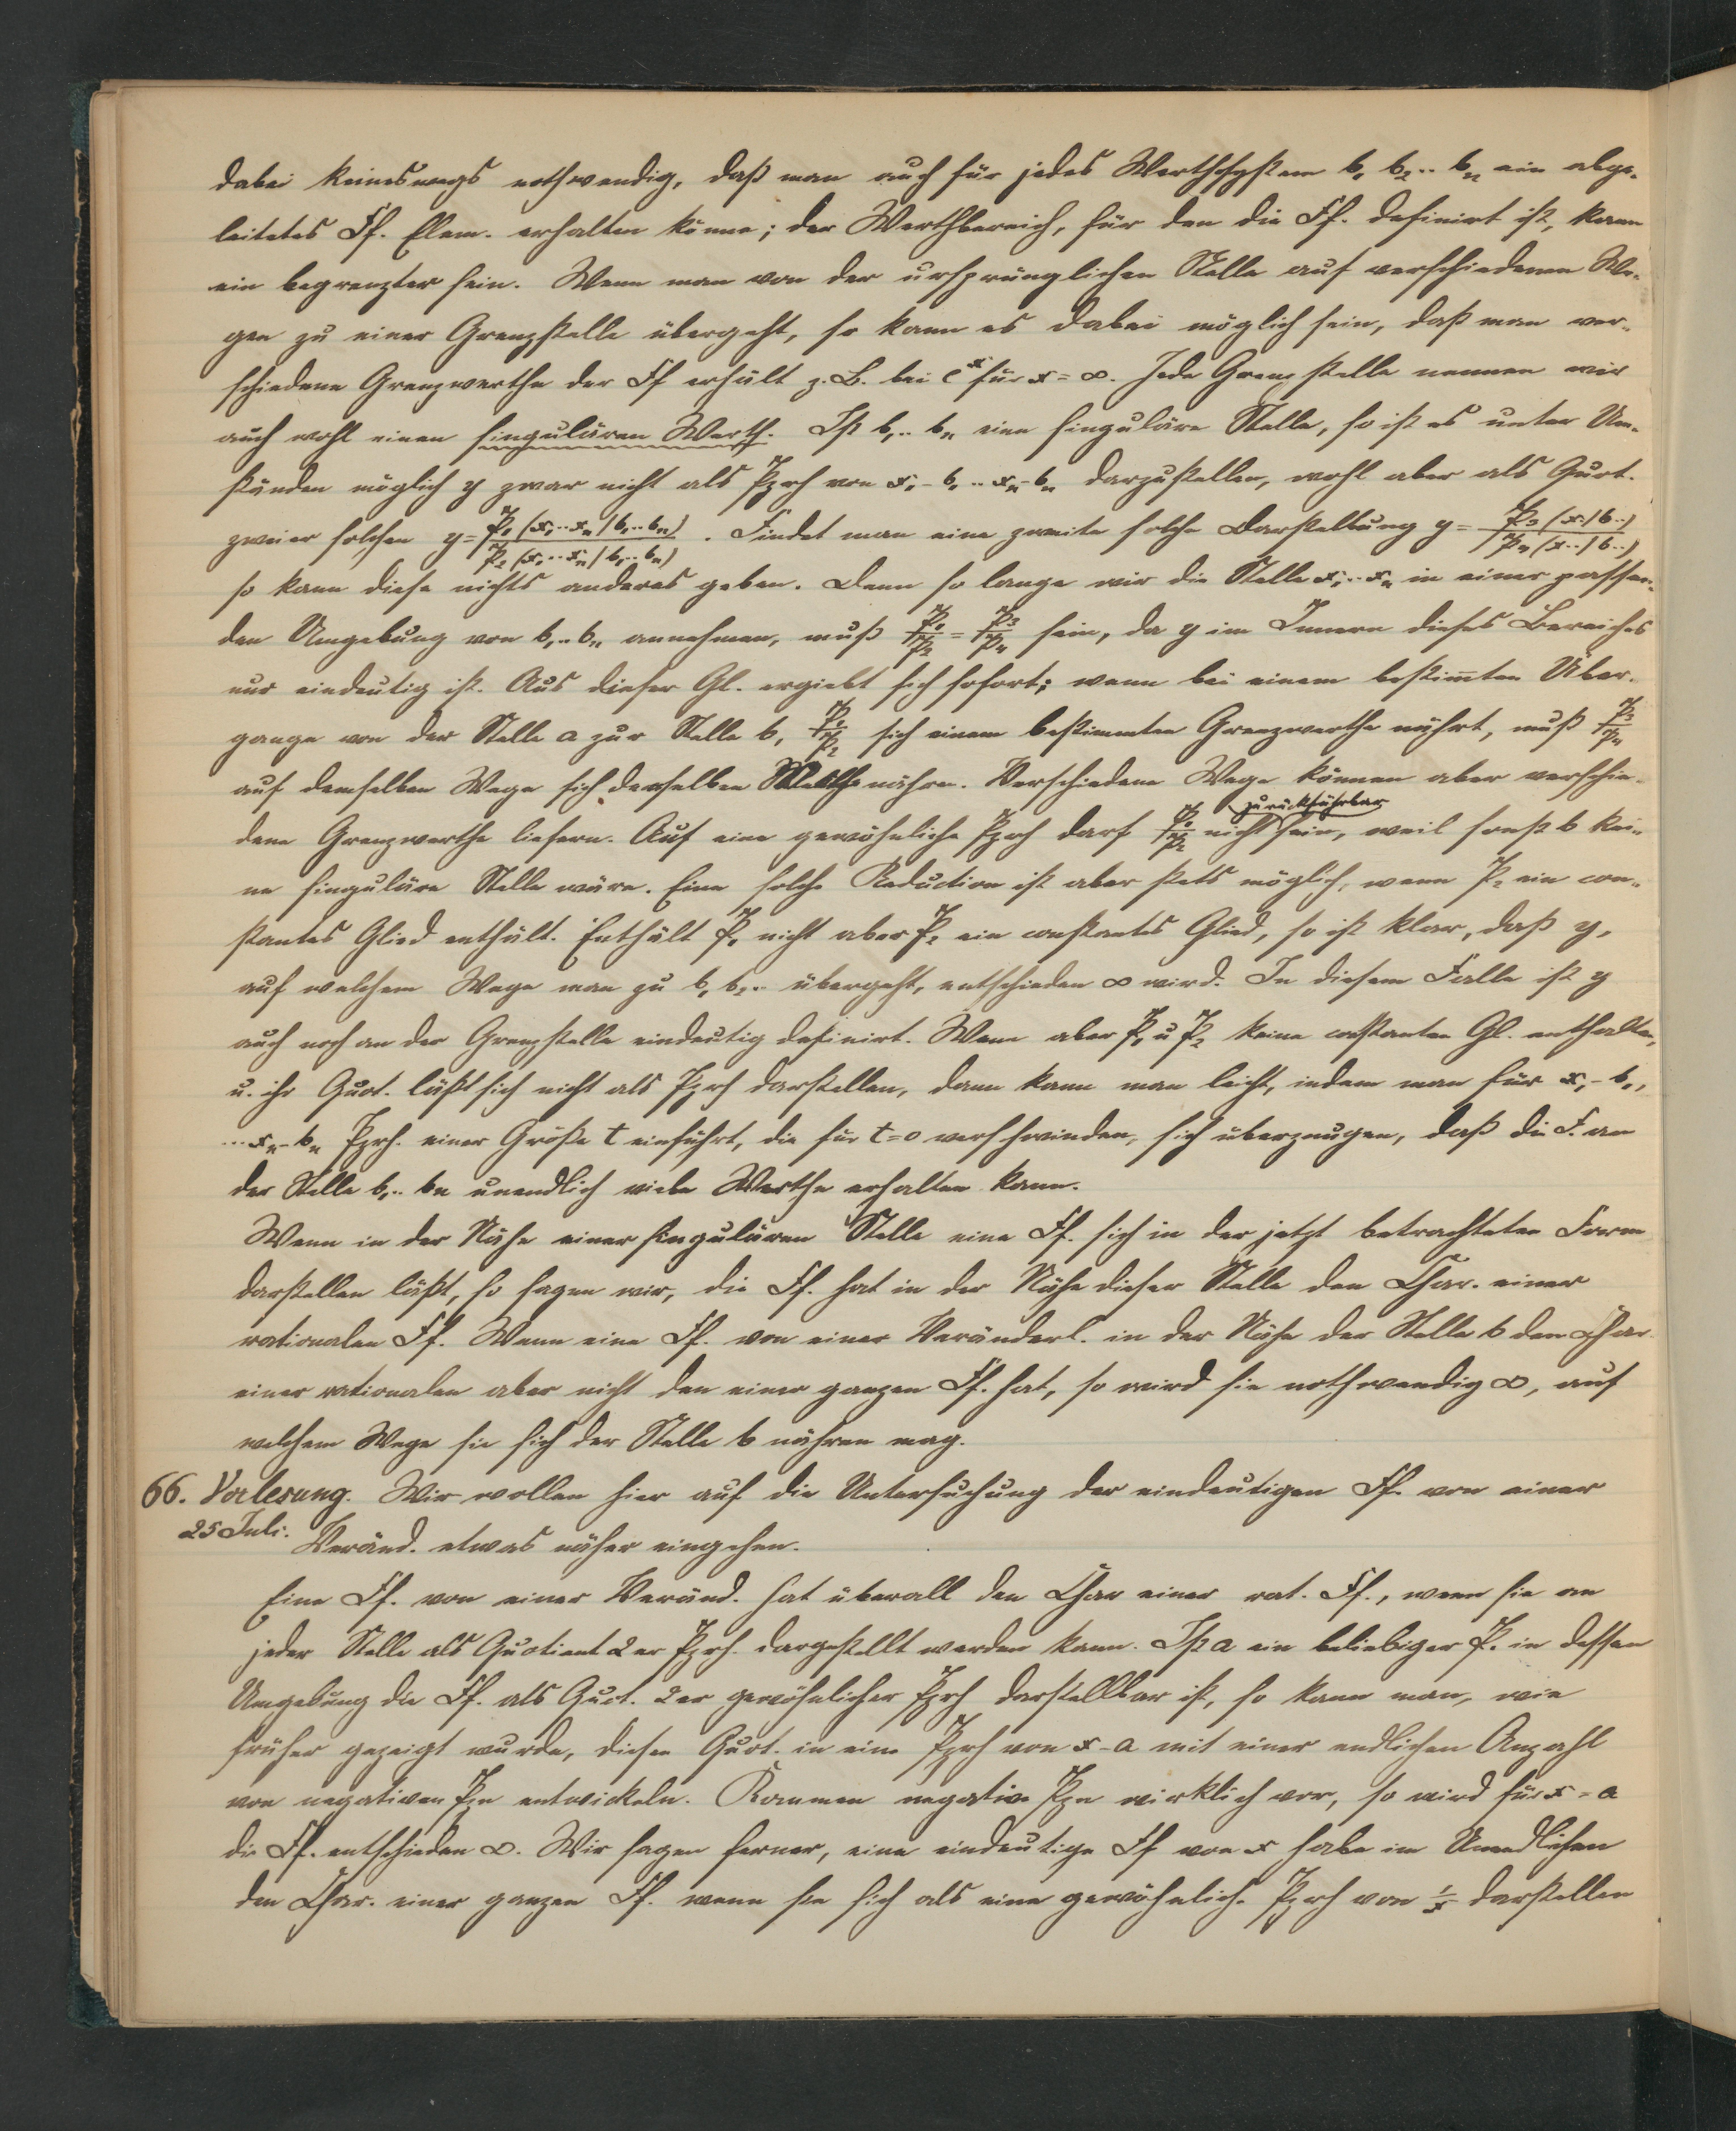 dabei keineswegs nothwendig, daß man auch für jedes Werthsystem b₁ b₂.. bₙ ein abge-
leitetes Ff. Elem. erhalten könne; der Werthbereich, für den die Ff. definirt ist, kann
ein begrenzter sein. Wenn man von der ursprünglichen Stelle auf verschiedenen We-
gen zu einer Grenzstelle übergeht, so kann es dabei möglich sein, daß man ver-
schiedene Grenzwerthe der Ff erhält z. B. bei eˣ für x = ∞. Jede Grenzstelle nennen wir
auch wohl einen singulären Werth. Ist b₁.. bₙ eine singuläre Stelle, so ist es unter Um-
ständen möglich y zwar nicht als Pzrh von x₁-b₁ .. xₙ-bₙ darzustellen, wohl aber als Quot.
zweier solchen y = P₁(x₁..xₙ|b₁..bₙ)/P₂(x₁..xₙ|b₁..bₙ). Findet man eine zweite solche Darstellung y = P₃(x..|b..)/P₄(x..|b..)
so kann diese nichts anderes geben. Denn so lange wir die Stelle x₁..xₙ in einer passen-
den Umgebung von b₁..bₙ annehmen, muß P₁/P₂ = P₃/P₄ sein, da y im Innern dieses Bereiches
nur eindeutig ist. Aus dieser Gl. ergiebt sich sofort; wenn bei einem bestim̅ten Über-
gange von der Stelle a zur Stelle b, P₁/P₂ sich einem bestimmten Grenzwerthe nährt, muß P₃/P₄
auf demselben Wege sich demselben Werthe nähren. Verschiedene Wege können aber verschie-
dene Grenzwerthe liefern. Auf eine gewöhnliche Pzrh darf P₁/P₂ nicht zurückführbar sein, weil sonst b kei-
ne singuläre Stelle wäre. Eine solche Reduction ist aber stets möglich, wenn P₂ ein con-
stantes Glied enthält. Enthält P₁ nicht aber P₂ ein constantes Glied, so ist klar, daß y,
auf welchem Wege man zu b₁ b₂.. übergeht, entschieden ∞ wird. In diesem Falle ist y
auch noch an der Grenzstelle eindeutig definirt. Wenn aber P₁ u P₂ keine constanten Gl. enthalten,
u. ihr Quot. läßt sich nicht als Pzrh darstellen, dann kann man leicht, indem man für x₁-b₁,
... xₙ-bₙ Pzrh. einer Größe t einführt, die für t=0 verschwinden, sich überzeugen, daß die F. an
der Stelle b₁.. bn unendlich viele Werthe erhalten kann.
Wenn in der Nähe einer singulären Stelle eine Ff. sich in der jetzt betrachteten Form
darstellen läßt, so sagen wir, die Ff. hat in der Nähe dieser Stelle den Char. einer
rationalen Ff. Wenn eine Ff. von einer Veränderl. in der Nähe der Stelle b den Char.
einer rationalen aber nicht den einer ganzen Ff. hat, so wird sie nothwendig ∞, auf
welchem Wege sie sich der Stelle b nähren mag.
66. Vorlesung. Wir wollen hier auf die Untersuchung der eindeutigen Ff. von einer
25 Juli. Veränd. etwas näher eingehen.
Eine Ff. von einer Veränd. hat überall den Char einer rat. Ff., wenn sie an
jeder Stelle als Quotient 2er Pzrh. dargestellt werden kann. Ist a ein beliebiger P. in dessen
Umgebung die Ff. als Quot. 2er gewöhnlicher Pzrh darstellbar ist, so kann man, wie
früher gezeigt wurde, diesen Quot. in eine Pzrh von x-a mit einer endlichen Anzahl
von negativen Pzn entwickeln. Kommen negative Pzn wirklich vor, so wird für x = a
die Ff. entschieden ∞. Wir sagen ferner, eine eindeutige Ff von x habe im Unendlichen
den Char. einer ganzen Ff. wenn sie sich als eine gewöhnlich. Pzrh von 1/x darstellen